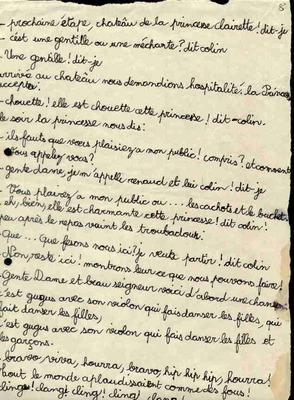 8
- prochaine étape, chateâu de la princesse clairette! dit-je
- c'est une gentille ou une mécharte? dit colin
- Une gentille! dit-je
arrivé au chateâu nous demandions hospitalité. la Princes
accepta.
- chouette! elle est chouette cette princesse! dit-colin.
le soir la princesse nous dis:
- ils fauts que vous plaisiez a mon public! compris? et comment
vous apelez voca?
- gente dame, je m'appelle renaud et lui colin! dit-je
- Vous plairez a mon public ou ... les cachots et le buchet.
- eh bien, elle est charmante cette princesse! dit colin!
peu après le repas vaint les troubadour.
- Que ... Que fesons nous ici? je veute partir! dit colin
- Non, reste ici! montrons leur ce que nous pouvons faire!
- Gente Dame et beau seigneur voici d'abord une chanson
c'est gugus avec son violon qui fais danser les filles, qui
fait danser les filles,
c'est gugus avec son violon qui fais danser les filles et
les garçons.
- bravo, viva, hourra, bravo, hip hip hip, hourra!
tout le monde aplaudissaient comme des fous!
cling! clang! cling! cling!